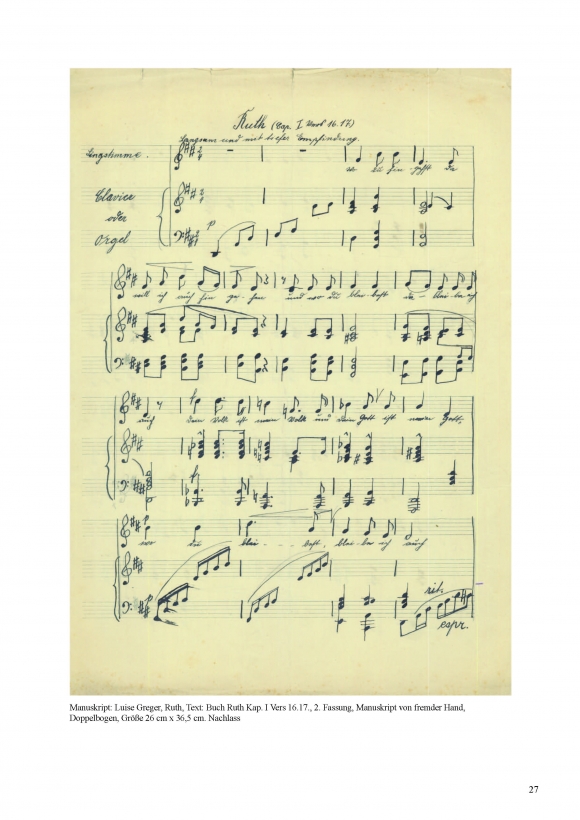 Ruth (Cap. I Vers 16.17.)
Langsam und mit tiefer Empfindung.
Singstimme.
wo du hin gehst da
Clavier
oder
Orgel
p
will ich auch hin gehen und wo du bleibest da bleibe ich
auch dein Volk ist mein Volk und dein Gott ist mein Gott,
f
f
p
wo du blei - - - best, bleibe ich auch
p
rit.
espr.
Manuskript: Luise Greger, Ruth, Text: Buch Ruth Kap. I Vers 16.17., 2. Fassung, Manuskript von fremder Hand,
Doppelbogen, Größe 26 cm x 36,5 cm. Nachlass
27